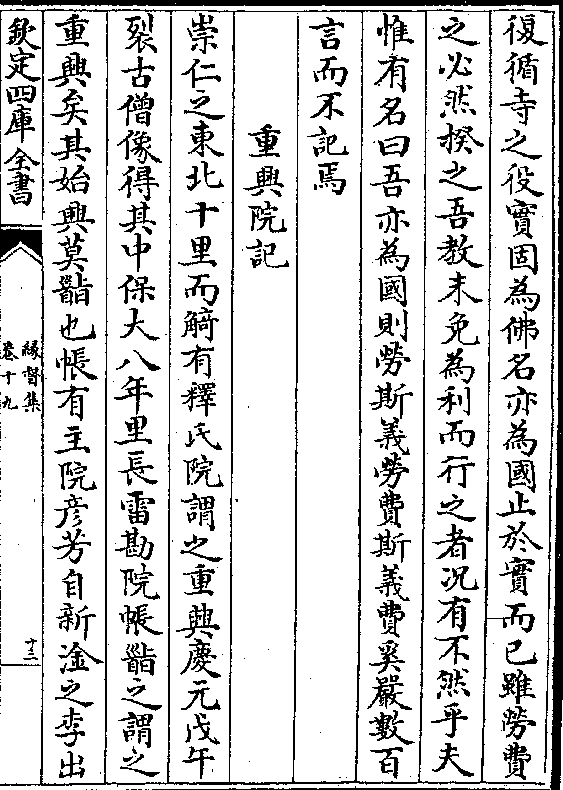 復循寺之役實固為佛名亦為國止於實而已雖勞費
之必然揆之吾教未免為利而行之者況有不然乎夫
惟有名曰吾亦為國則勞斯義勞費斯義費奚嚴數百
言而不記焉
重興院記
崇仁之東北十里而觭有釋氏院謂之重興慶元戊午
裂古僧像得其中保大八年里長雷勘院帳㽞之謂之
重興矣其始興莫㽞也帳有主院彦芳自新淦之李出
欽定四庫全書
縁督集
卷十九
十三